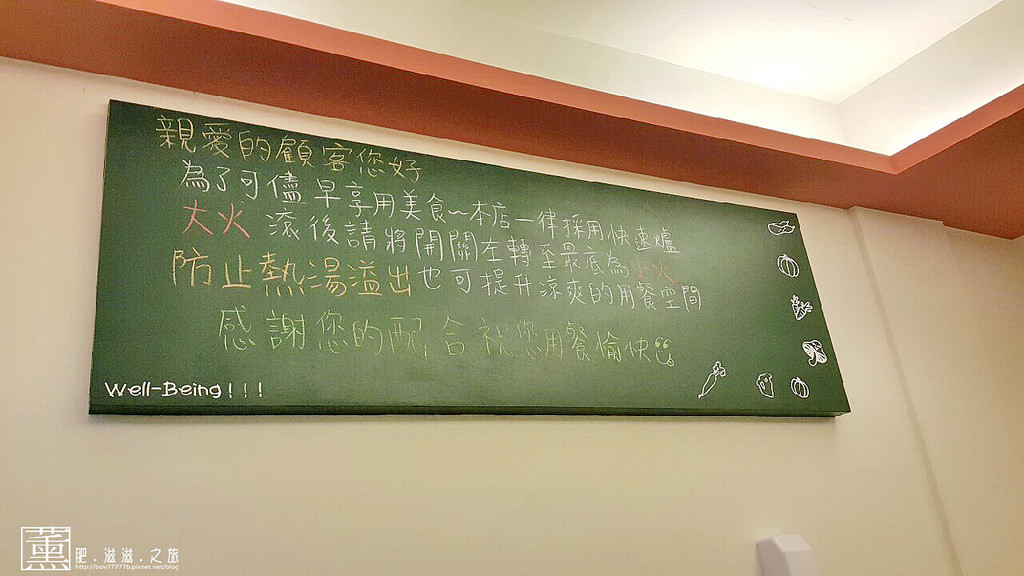 親愛的顧客您好
為了可儘早享用美食~本店一律採用快速爐
大火 滾後請將開關左轉至最底為小火
防止熱湯溢出也可提升涼爽的用餐空間
感謝您的配合祝您用餐愉快
Well-Being!!!
薰 肥.滋滋.之旅
http://bov77777b.pixnet.net/blog